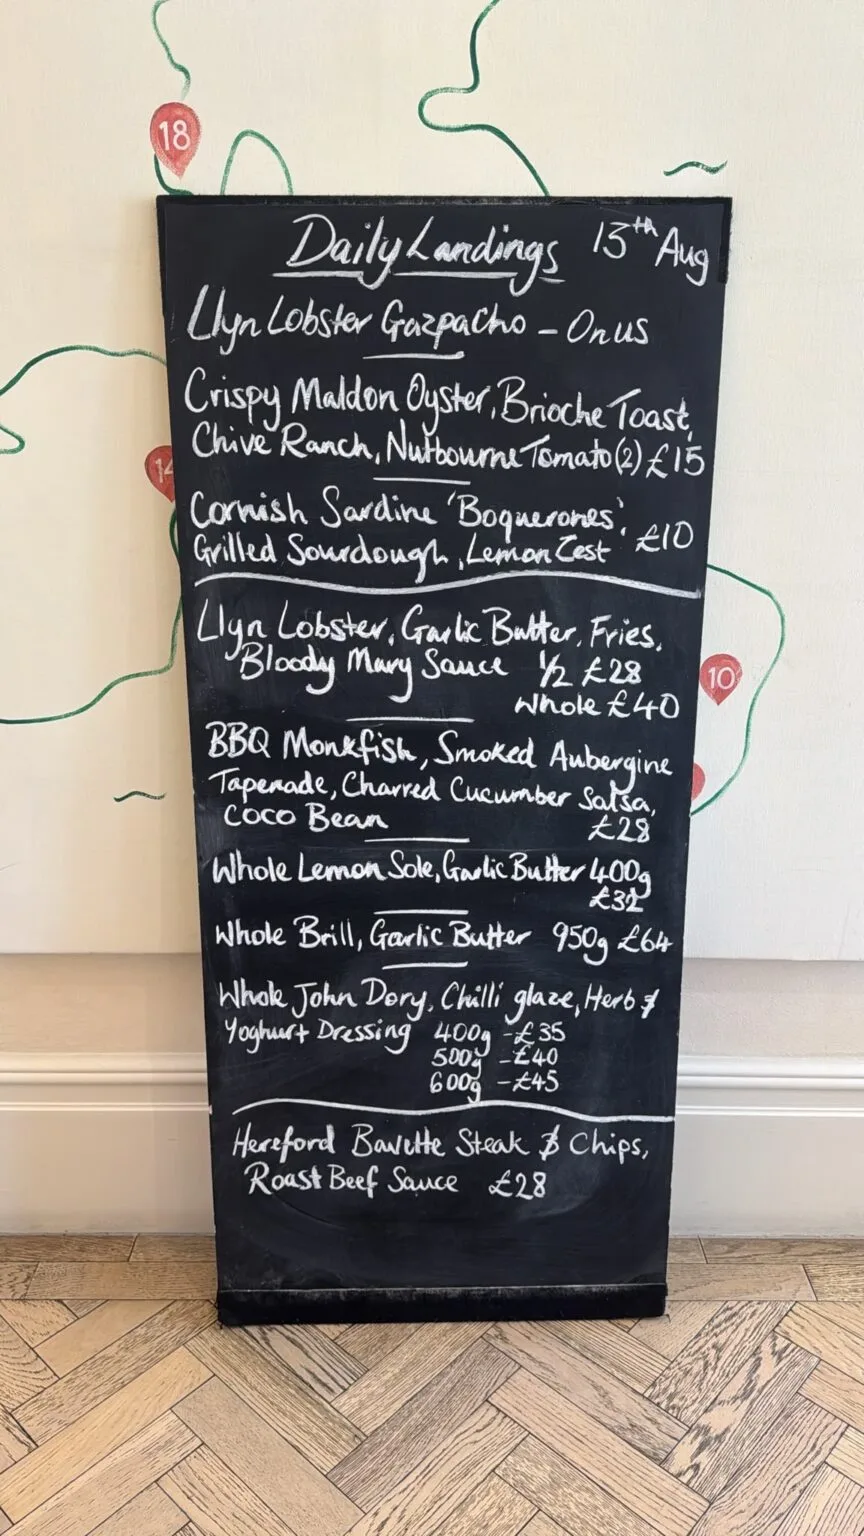 18
Daily Landings 13th Aug
Llyn Lobster Gazpacho – On us
Crispy Maldon Oyster, Brioche Toast,
Chive Ranch, Nutbourne Tomato (2) £15
14
Cornish Sardine 'Boquerones',
Grilled Sourdough, Lemon Zest £10
Llyn Lobster, Garlic Butter, Fries,
Bloody Mary Sauce 1/2 £28
10
Whole £40
BBQ Monkfish, Smoked Aubergine
Tapenade, Charred Cucumber Salsa,
Coco Bean £28
Whole Lemon Sole, Garlic Butter 400g
£32
Whole Brill, Garlic Butter 950g £64
Whole John Dory, Chilli glaze, Herb &
Yoghurt Dressing 400g – £35
500g – £40
600g – £45
Hereford Bavette Steak & Chips,
Roast Beef Sauce £28